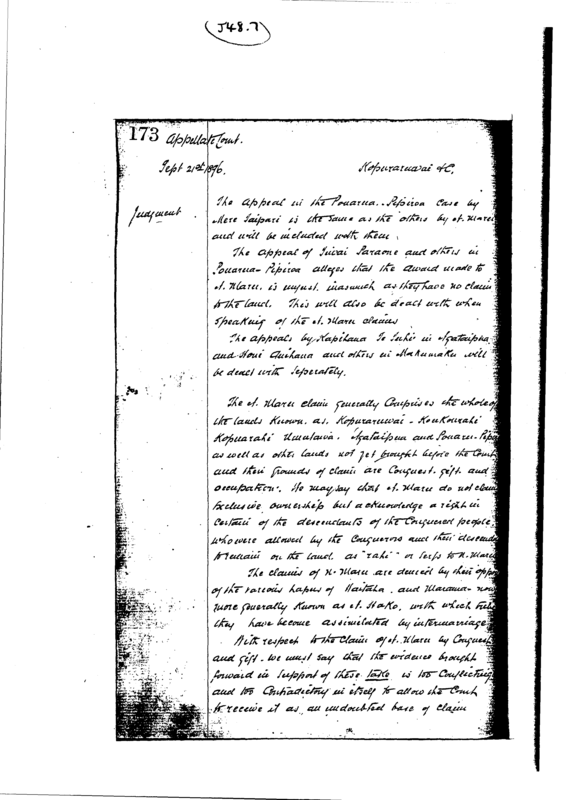 (J48.7)
173 Appellate Court.
Sept 21st 1896.
Kopuraruwai &C.
Judgment
The appeal in the Pouarua-Pipiroa case by
Mere Taipari is the same as the others by N. Maru
and will be included with them.
The appeal of Paraone and others in
Pouarua-Pipiroa alleges that the award made to
N. Maru is unjust inasmuch as they have no claim
to the land. This will also be dealt with when
speaking of the N. Maru claims
The appeals by Kapihana Te Tuhi in Ngataipua
and Honi and others in Makumaku will
be dealt with seperately.
The N. Maru claim generally Comprises the whole of
the lands known as Kopuraruwai - Koukourahi
Kopuarahi Umutawa. Ngataipua and Pouaru-Pipi
as well as other lands not yet brought before the Court
and their grounds of claim are Conquest, gift and
occupation. We may say that N. Maru do not claim
Exclusive ownership but acknowledge a right in
certain of the descendants of the Conquered people,
who were allowed by the Conquerors and their descend
to remain on the land as "rahi" or serfs to N. Maru
The claims of N. Maru are denied by their opp
of the various hapus of Waitaha and Marama - now
more generally known as N. Hako, with which tribe
they have become assimilated by intermarriage
With respect to the claim of N. Maru by Conquest
and gift - we must say that the evidence brought
forward in support of these take is too Conflicting
and too Contradictory in itself to allow the Court
to receive it as an undoubted base of claim